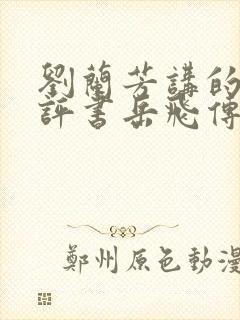 劉蘭芳講的
評書岳飛傳
鄭州原色動漫